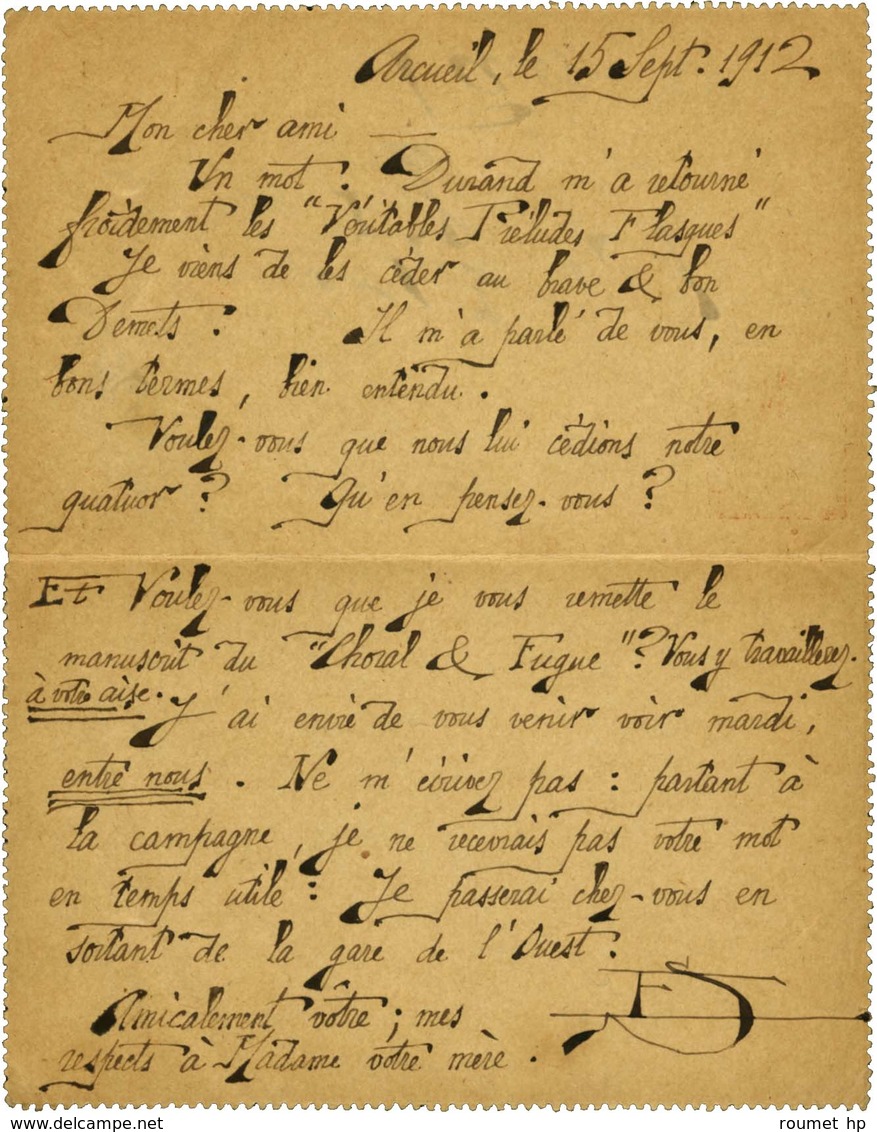 Arcueil, le 15 Sept. 1912
Mon cher ami —
Un mot : Durand m'a retourné
froidement les "Véritables Préludes Flasques"
Je viens de les céder au brave & bon
Demets : Il m'a parlé de vous, en
bons termes, bien entendu.
Voulez-vous que nous lui cédions notre
quatuor ? Qu'en pensez-vous ?
Et Voulez-vous que je vous remette le
manuscrit du "Choral & Fugue" ? Vous y travaillerez
à votre aise. J'ai envie de vous venir voir mardi,
entre nous. Ne m'écrivez pas : partant à
la campagne, je ne recevrais pas votre mot
en temps utile : Je passerai chez-vous en
sortant de la gare de l'Ouest.
Amicalement vôtre ; mes
respects à Madame votre mère.
ES
www.delcampe.net
roumet hp